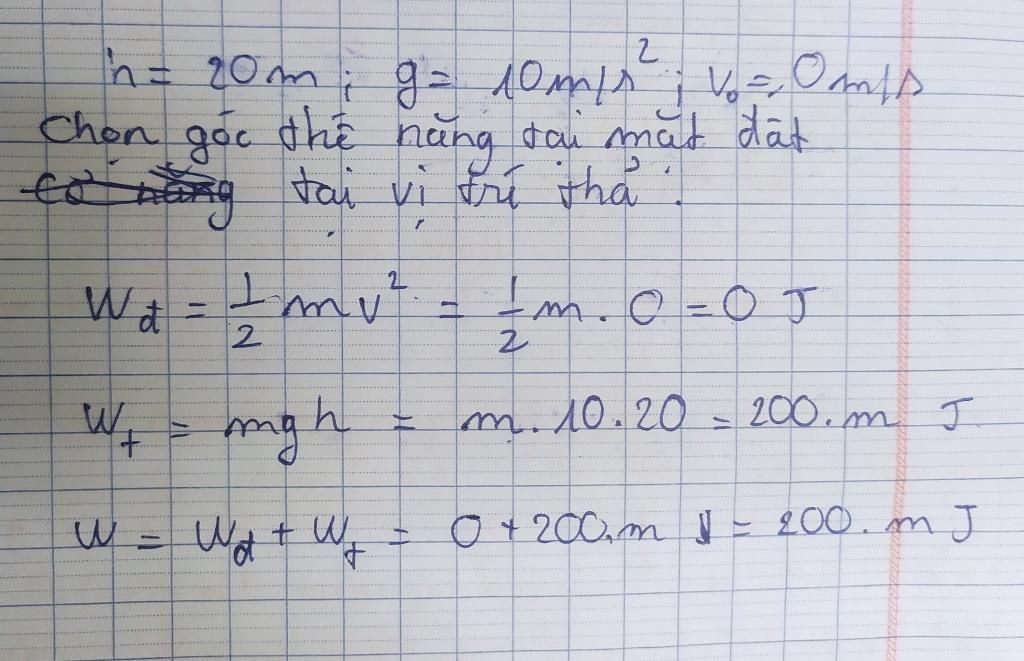 h = 20m ; g = 10m/s² ; v₀ = 0m/s
Chọn gốc thế năng tại mặt đất
Cơ năng tại vị trí thả :
Wđ = 1/2 mv² = 1/2 m . 0 = 0 J
Wt = mgh = m . 10 . 20 = 200 . m J
W = Wđ + Wt = 0 + 200 . m J = 200 . m J